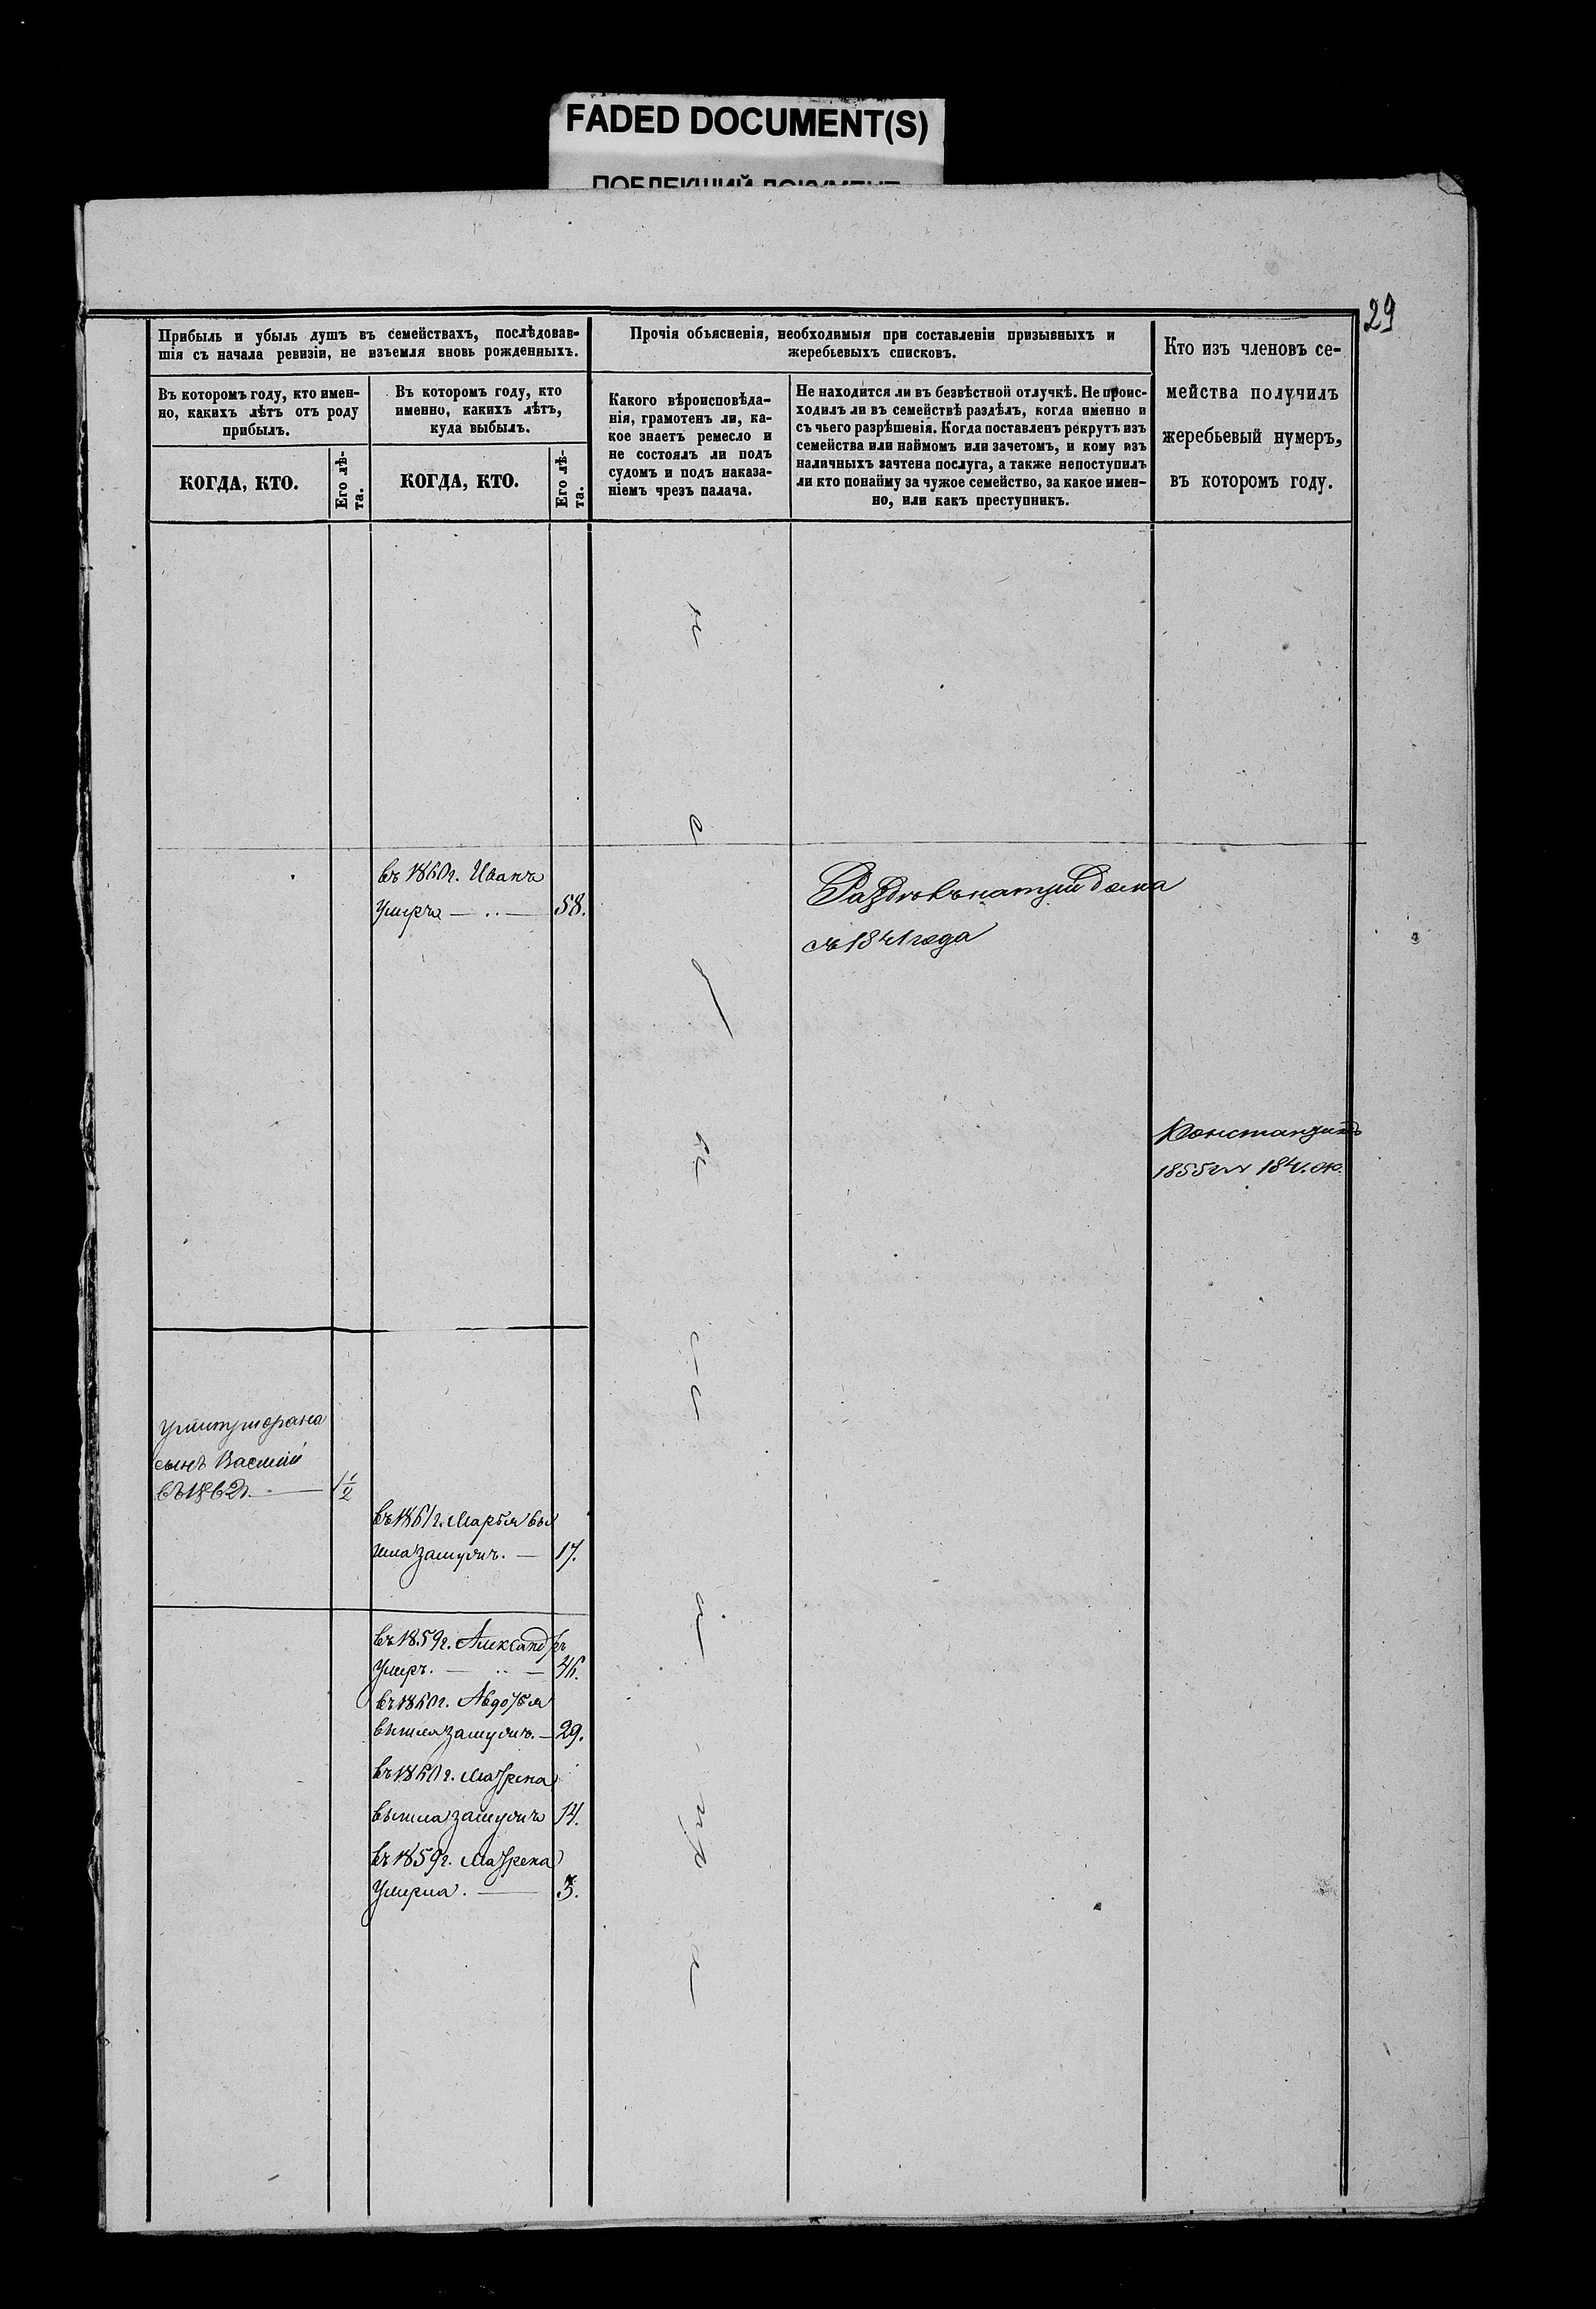 FADED DOCUMENT(S)
ПОБЛЕКШИЙ ДОКУМЕНТ
29
Прибыль и убыль душъ въ семействахъ, послѣдовав-
шія съ начала ревизіи, не изъемля вновь рожденныхъ.
Въ которомъ году, кто имен-
но, какихъ лѣтъ отъ роду
прибылъ.
Въ которомъ году, кто
именно, какихъ лѣтъ,
куда выбылъ.
КОГДА, КТО.
Его лѣ-
та.
КОГДА, КТО.
Его лѣ-
та.
Прочія объясненія, необходимыя при составленіи призывныхъ и
жеребьевыхъ списковъ.
Какого вѣроисповѣда-
нія, грамотенъ ли, ка-
кое знаетъ ремесло и
не состоялъ ли подъ
судомъ и подъ наказа-
ніемъ чрезъ палача.
Не находится ли въ безвѣстной отлучкѣ. Не проис-
ходилъ ли въ семействѣ раздѣлъ, когда именно и
съ чьего разрѣшенія. Когда поставленъ рекрутъ изъ
семейства или наймомъ или зачетомъ, и кому изъ
наличныхъ зачтена послуга, а также непоступилъ
ли кто понайму за чужое семейство, за какое имен-
но, или какъ преступникъ.
Кто изъ членовъ се-
мейства получилъ
жеребьевый нумеръ,
въ которомъ году.
въ 1860 г. Иванъ
Умеръ 58.
съ 1841 года
Константинъ
1855
сынъ Василій
въ 1862 г. 1/2
въ 1861 г. Марья вы
шла замужъ. 17.
въ 1859 г. Александръ
Умеръ. 46.
въ 1860 г. Авдотья
вышла замужъ. 29.
въ 1860 г. Матрена
вышла замужъ 14.
въ 1859 г. Матрена
Умерла. 3.